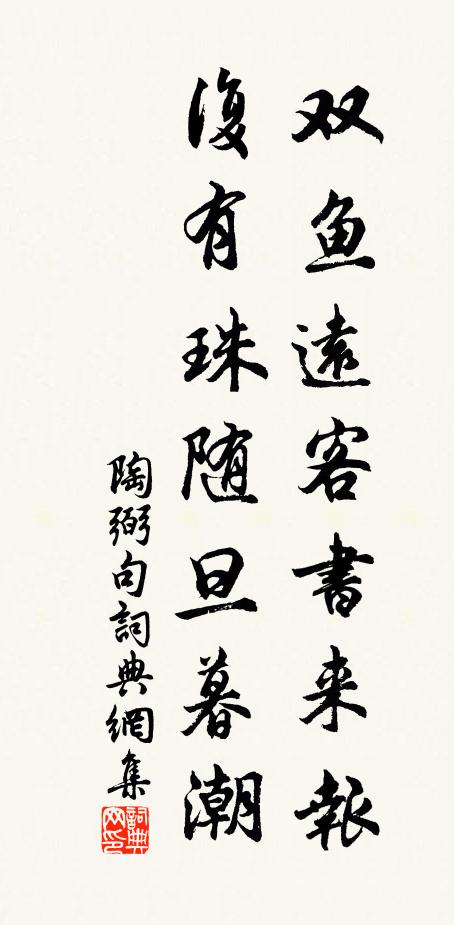 双鱼遠客書来報
復有珠随旦暮潮
陶弼句詞典網集
詞典网印